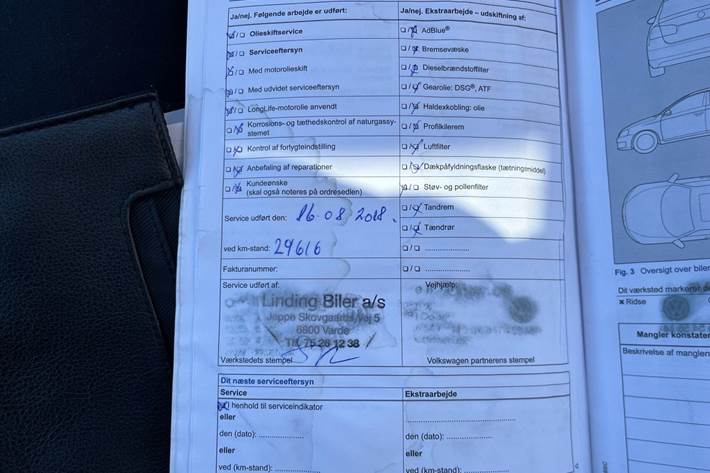 Ja/nej. Følgende arbejde er udført:
Olieskiftservice
Serviceeftersyn
Med motorolieskift
Med udvidet serviceeftersyn
LongLife-motorolie anvendt
Korrosions- og tæthedskontrol af naturgassy-
stemet
Kontrol af forlygteindstilling
Anbefaling af reparationer
Kundeønske
(skal også noteres på ordresedlen)
Service udført den: 16-08 2018.
ved km-stand: 29616
Fakturanummer:
Service udført af:
Linding Biler a/s
Jeppe Skovgaards Vej 5
6800 Varde
Tlf. 75 26 12 38
Værkstedets stempel
Ja/nej. Ekstraarbejde – udskiftning af:
AdBlue®
Bremsevæske
Dieselbrændstoffilter
Gearolie: DSG®, ATF
Haldexkobling: olie
Profilkilerem
Luftfilter
Dækpåfyldningsflaske (tætningmiddel)
Støv- og pollenfilter
Tandrem
Tændrør
Vejhjælp:
Volkswagen partnerens stempel
Dit næste serviceeftersyn
Service
I henhold til serviceindikator
eller
den (dato):
eller
ved (km-stand):
Ekstraarbejde
den (dato):
eller
ved (km-stand):
Fig. 3 Oversigt over biler
Dit værksted markerer
× Ridse
Mangler konstater
Beskrivelse af mangler